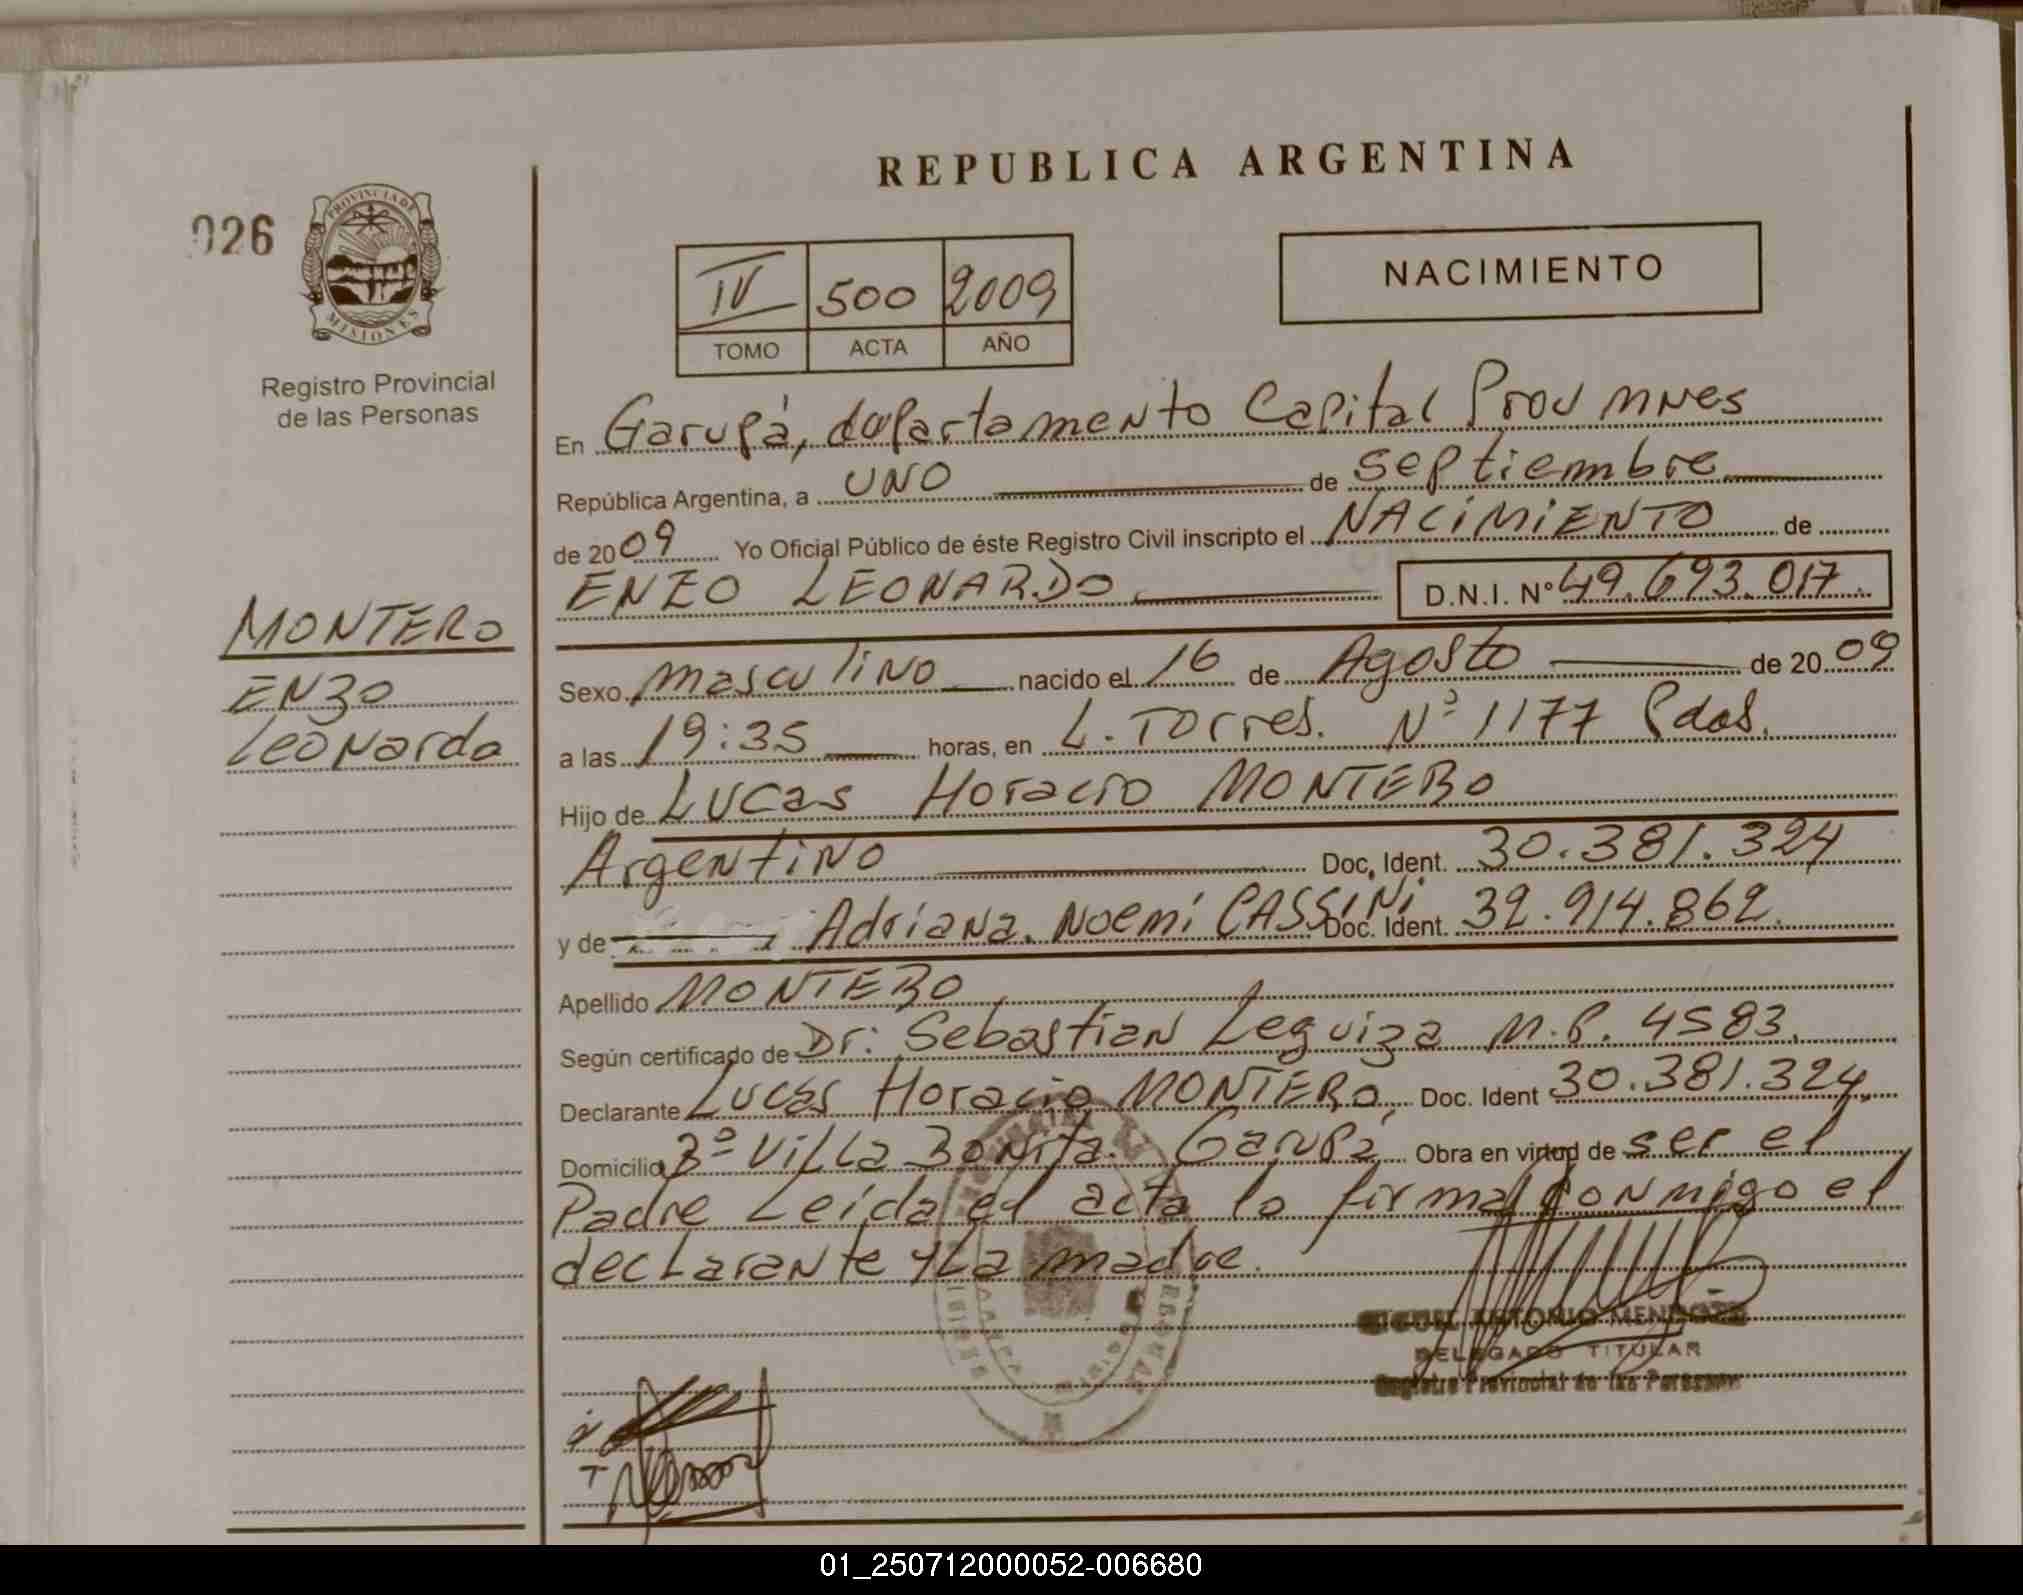 REPUBLICA ARGENTINA
026
PROVINCIA DE
MISIONES
Registro Provincial
de las Personas
IV 500 2009
TOMO ACTA AÑO
NACIMIENTO
En Garupá, departamento Capital Prov Mnes
República Argentina, a UNO de septiembre
de 2009 Yo Oficial Público de éste Registro Civil inscripto el NACIMIENTO de
ENZO LEONARDO D.N.I. Nº 49.693.017.
MONTERO
ENZO
Leonardo
Sexo masculino nacido el 16 de Agosto de 2009
a las 19:35 horas, en L. Torres. Nº 1177 Pdas.
Hijo de Lucas Horacio MONTERO
Argentino Doc. Ident. 30.381.324
y de Adriana Noemí CASSINI Doc. Ident. 32.914.862.
Apellido MONTERO
Según certificado de Dr: Sebastian Leguiza M.P. 4583.
Declarante Lucas Horacio MONTERO, Doc. Ident 30.381.324.
Domicilio Bº Villa Bonita. Garupá Obra en virtud de ser el
Padre Leída el acta la firma conmigo el
declarante y La madre.
MIGUEL ANTONIO
DELEGADO TITULAR
Registro Provincial de las Personas
01_250712000052-006680